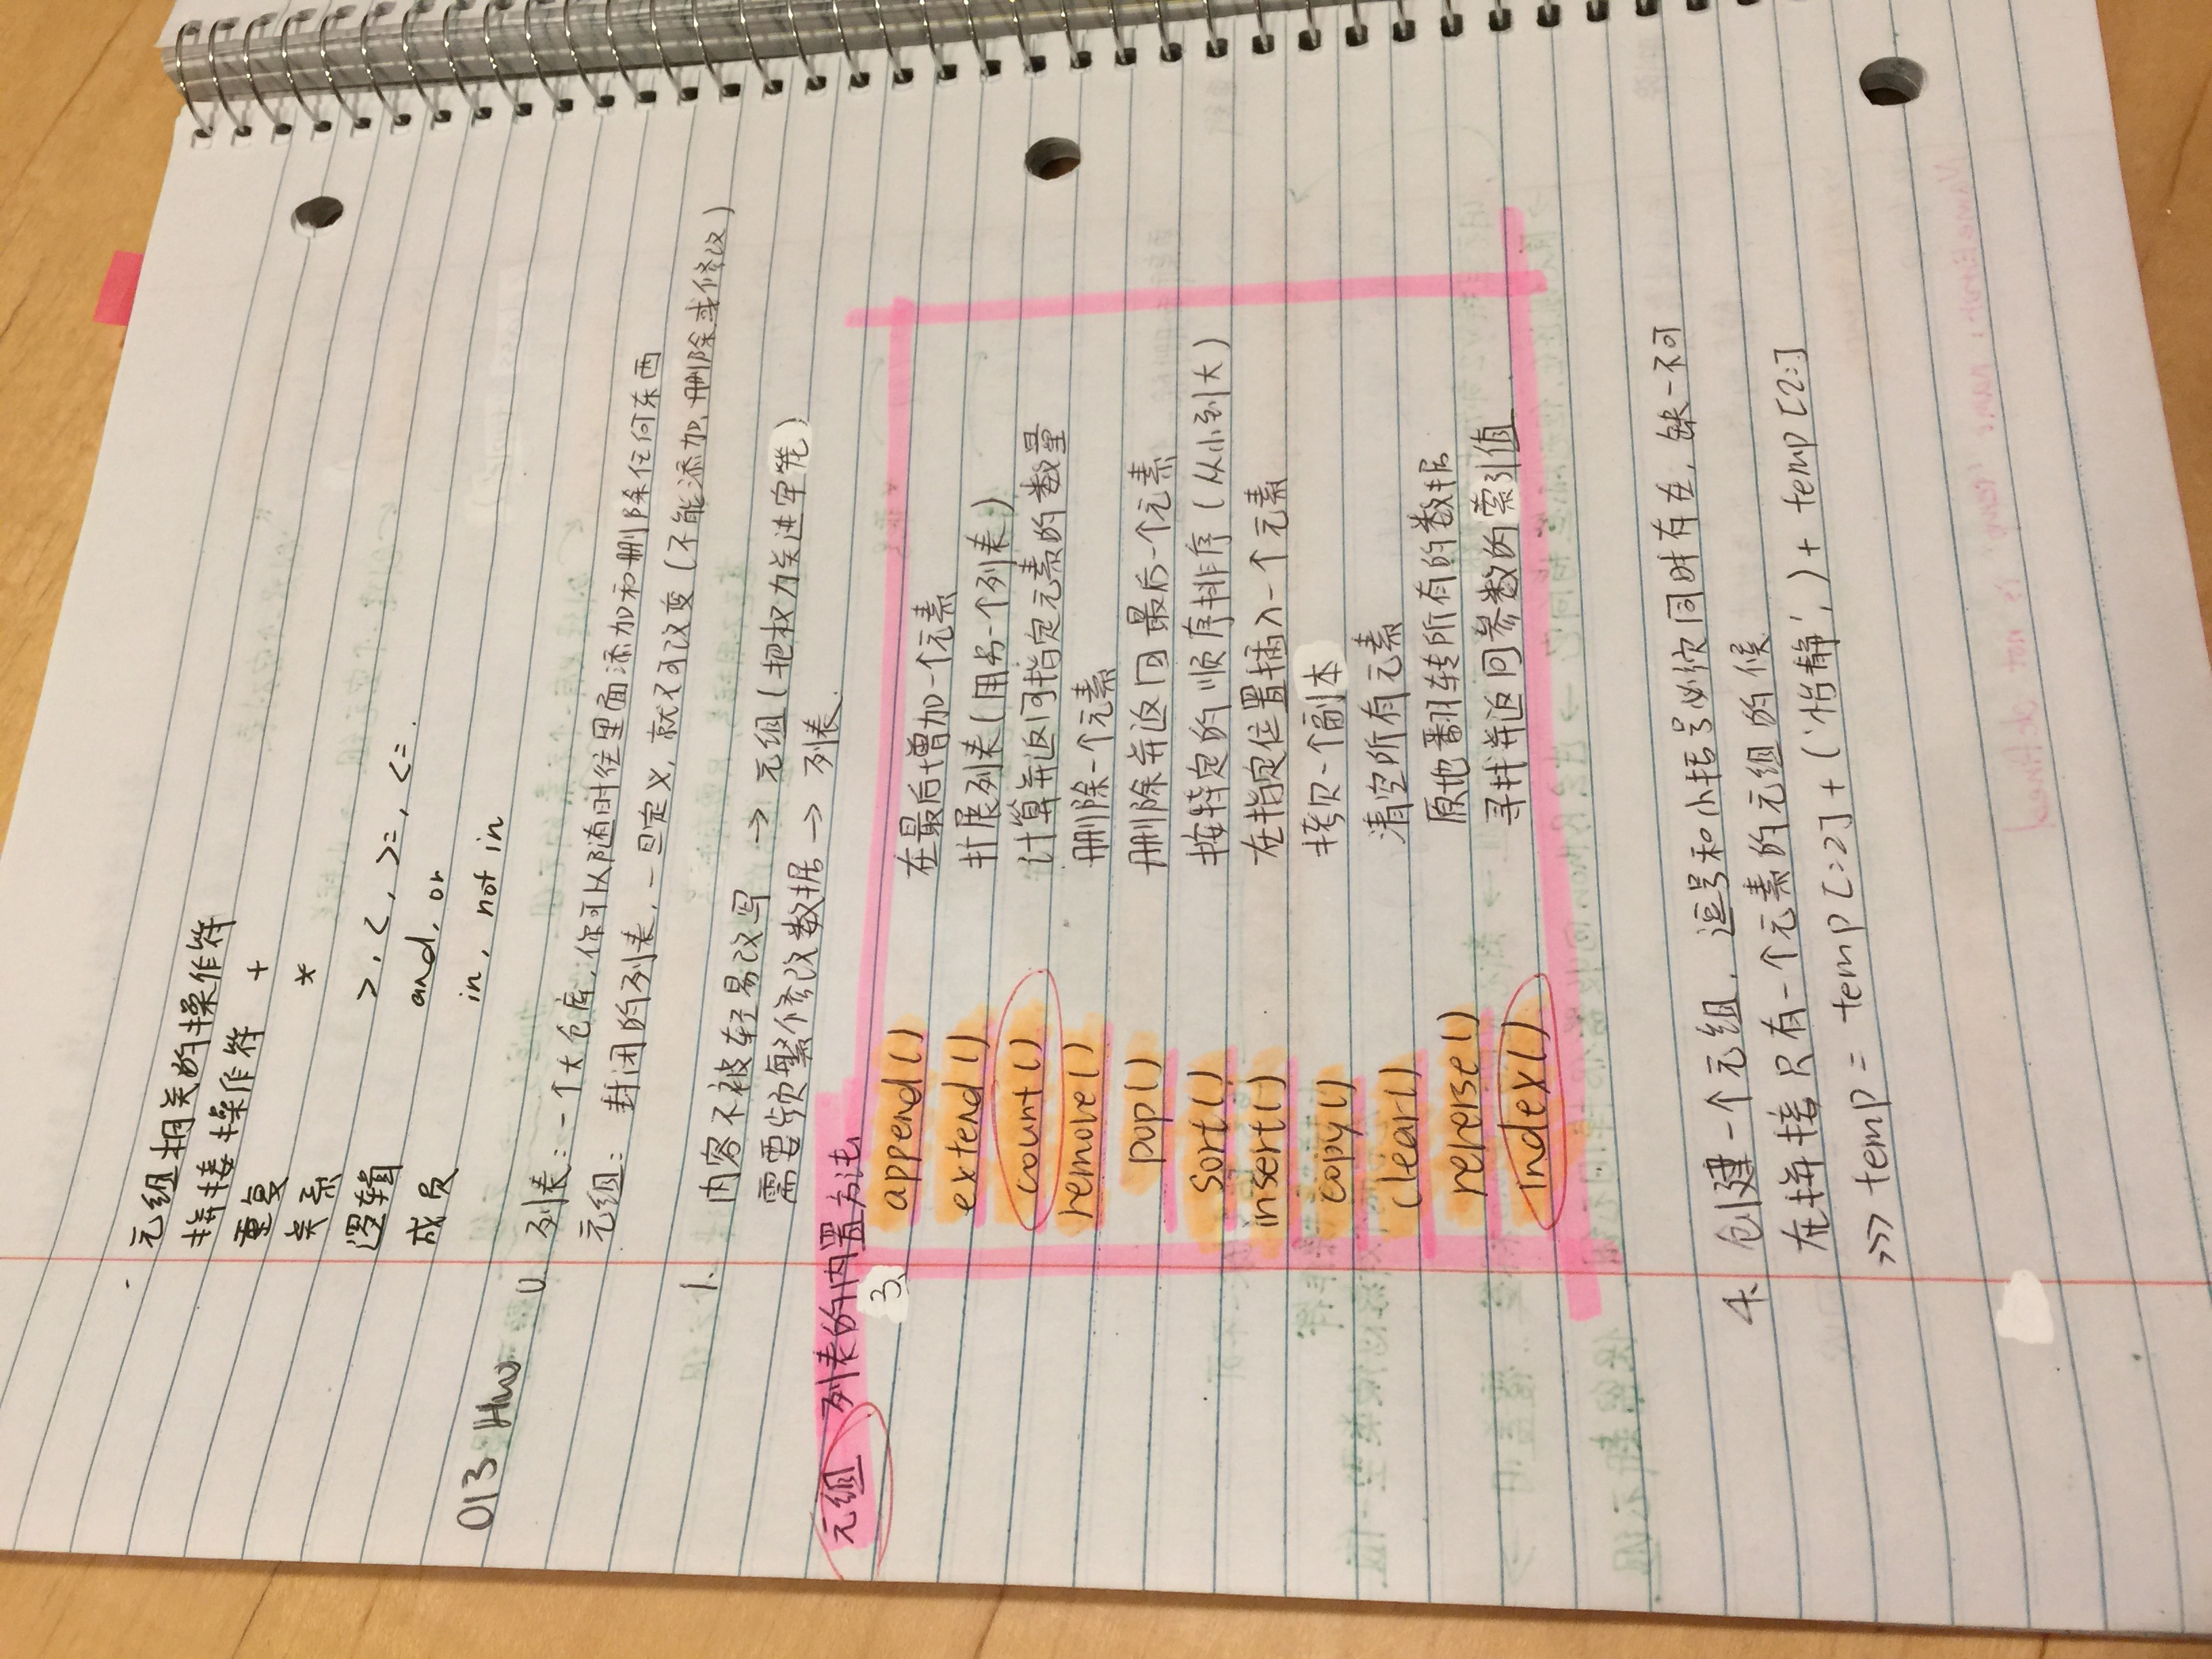 元组相关的操作符
拼接操作符 +
重复 *
关系 >, <, >=, <=.
逻辑 and, or
成员 in, not in
013 HW
0. 列表:一个大仓库,你可以随时往里面添加和删除任何东西
元组: 封闭的列表,一旦定义,就不可改变(不能添加、删除或修改)
1. 内容不被轻易改写 → 元组(把权力关进牢笼)
需要频繁修改数据 → 列表
元组 列表的内置方法
3.
append() 在最后增加一个元素
extend() 扩展列表(用另一个列表)
count() 计算并返回指定元素的数量
remove() 删除一个元素
pop() 删除并返回最后一个元素
sort() 按特定的顺序排序(从小到大)
insert() 在指定位置插入一个元素
copy() 拷贝一个副本
clear() 清空所有元素
reverse() 原地翻转所有的数据
index() 寻找并返回参数的索引值
4. 创建一个元组,逗号和小括号必须同时存在,缺一不可
在拼接只有一个元素的元组的候
>>> temp = temp[:2] + ('怡静',) + temp[2:]